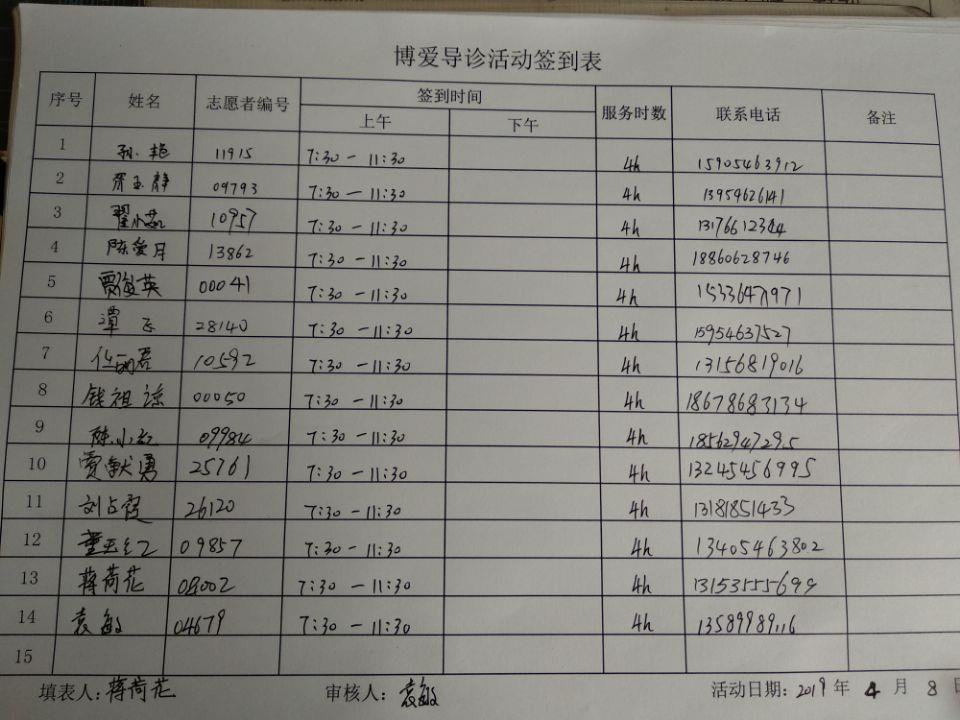 博爱导诊活动签到表
序号 姓名 志愿者编号 签到时间 服务时数 联系电话 备注
上午 下午
1 孙艳 11915 7:30-11:30 4h 15905463912
2 贾玉静 09793 7:30-11:30 4h 13954626141
3 翟小荔 10957 7:30-11:30 4h
4 陈爱月 13862 7:30-11:30 4h 18860628746
5 贾俊英 00041 7:30-11:30 4h 15333647971
6 潭飞 28140 7:30-11:30 4h 15954637527
7 10592 7:30-11:30 4h 13156819016
8 钱祖 00050 7:30-11:30 4h 18678683134
9 陈小红 09984 7:30-11:30 4h 18562947295
10 贾献勇 25761 7:30-11:30 4h 13245456995
11 刘占霞 26120 7:30-11:30 4h 13181851433
12 董玉红 09857 7:30-11:30 4h 13405463802
13 蒋荷花 7:30-11:30 4h 13153555699
14 袁敏 04679 7:30-11:30 4h 13589989116
15
填表人:蒋荷花 审核人:袁敏 活动日期:2019年4月8日